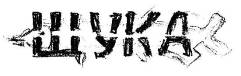 ЩУКА